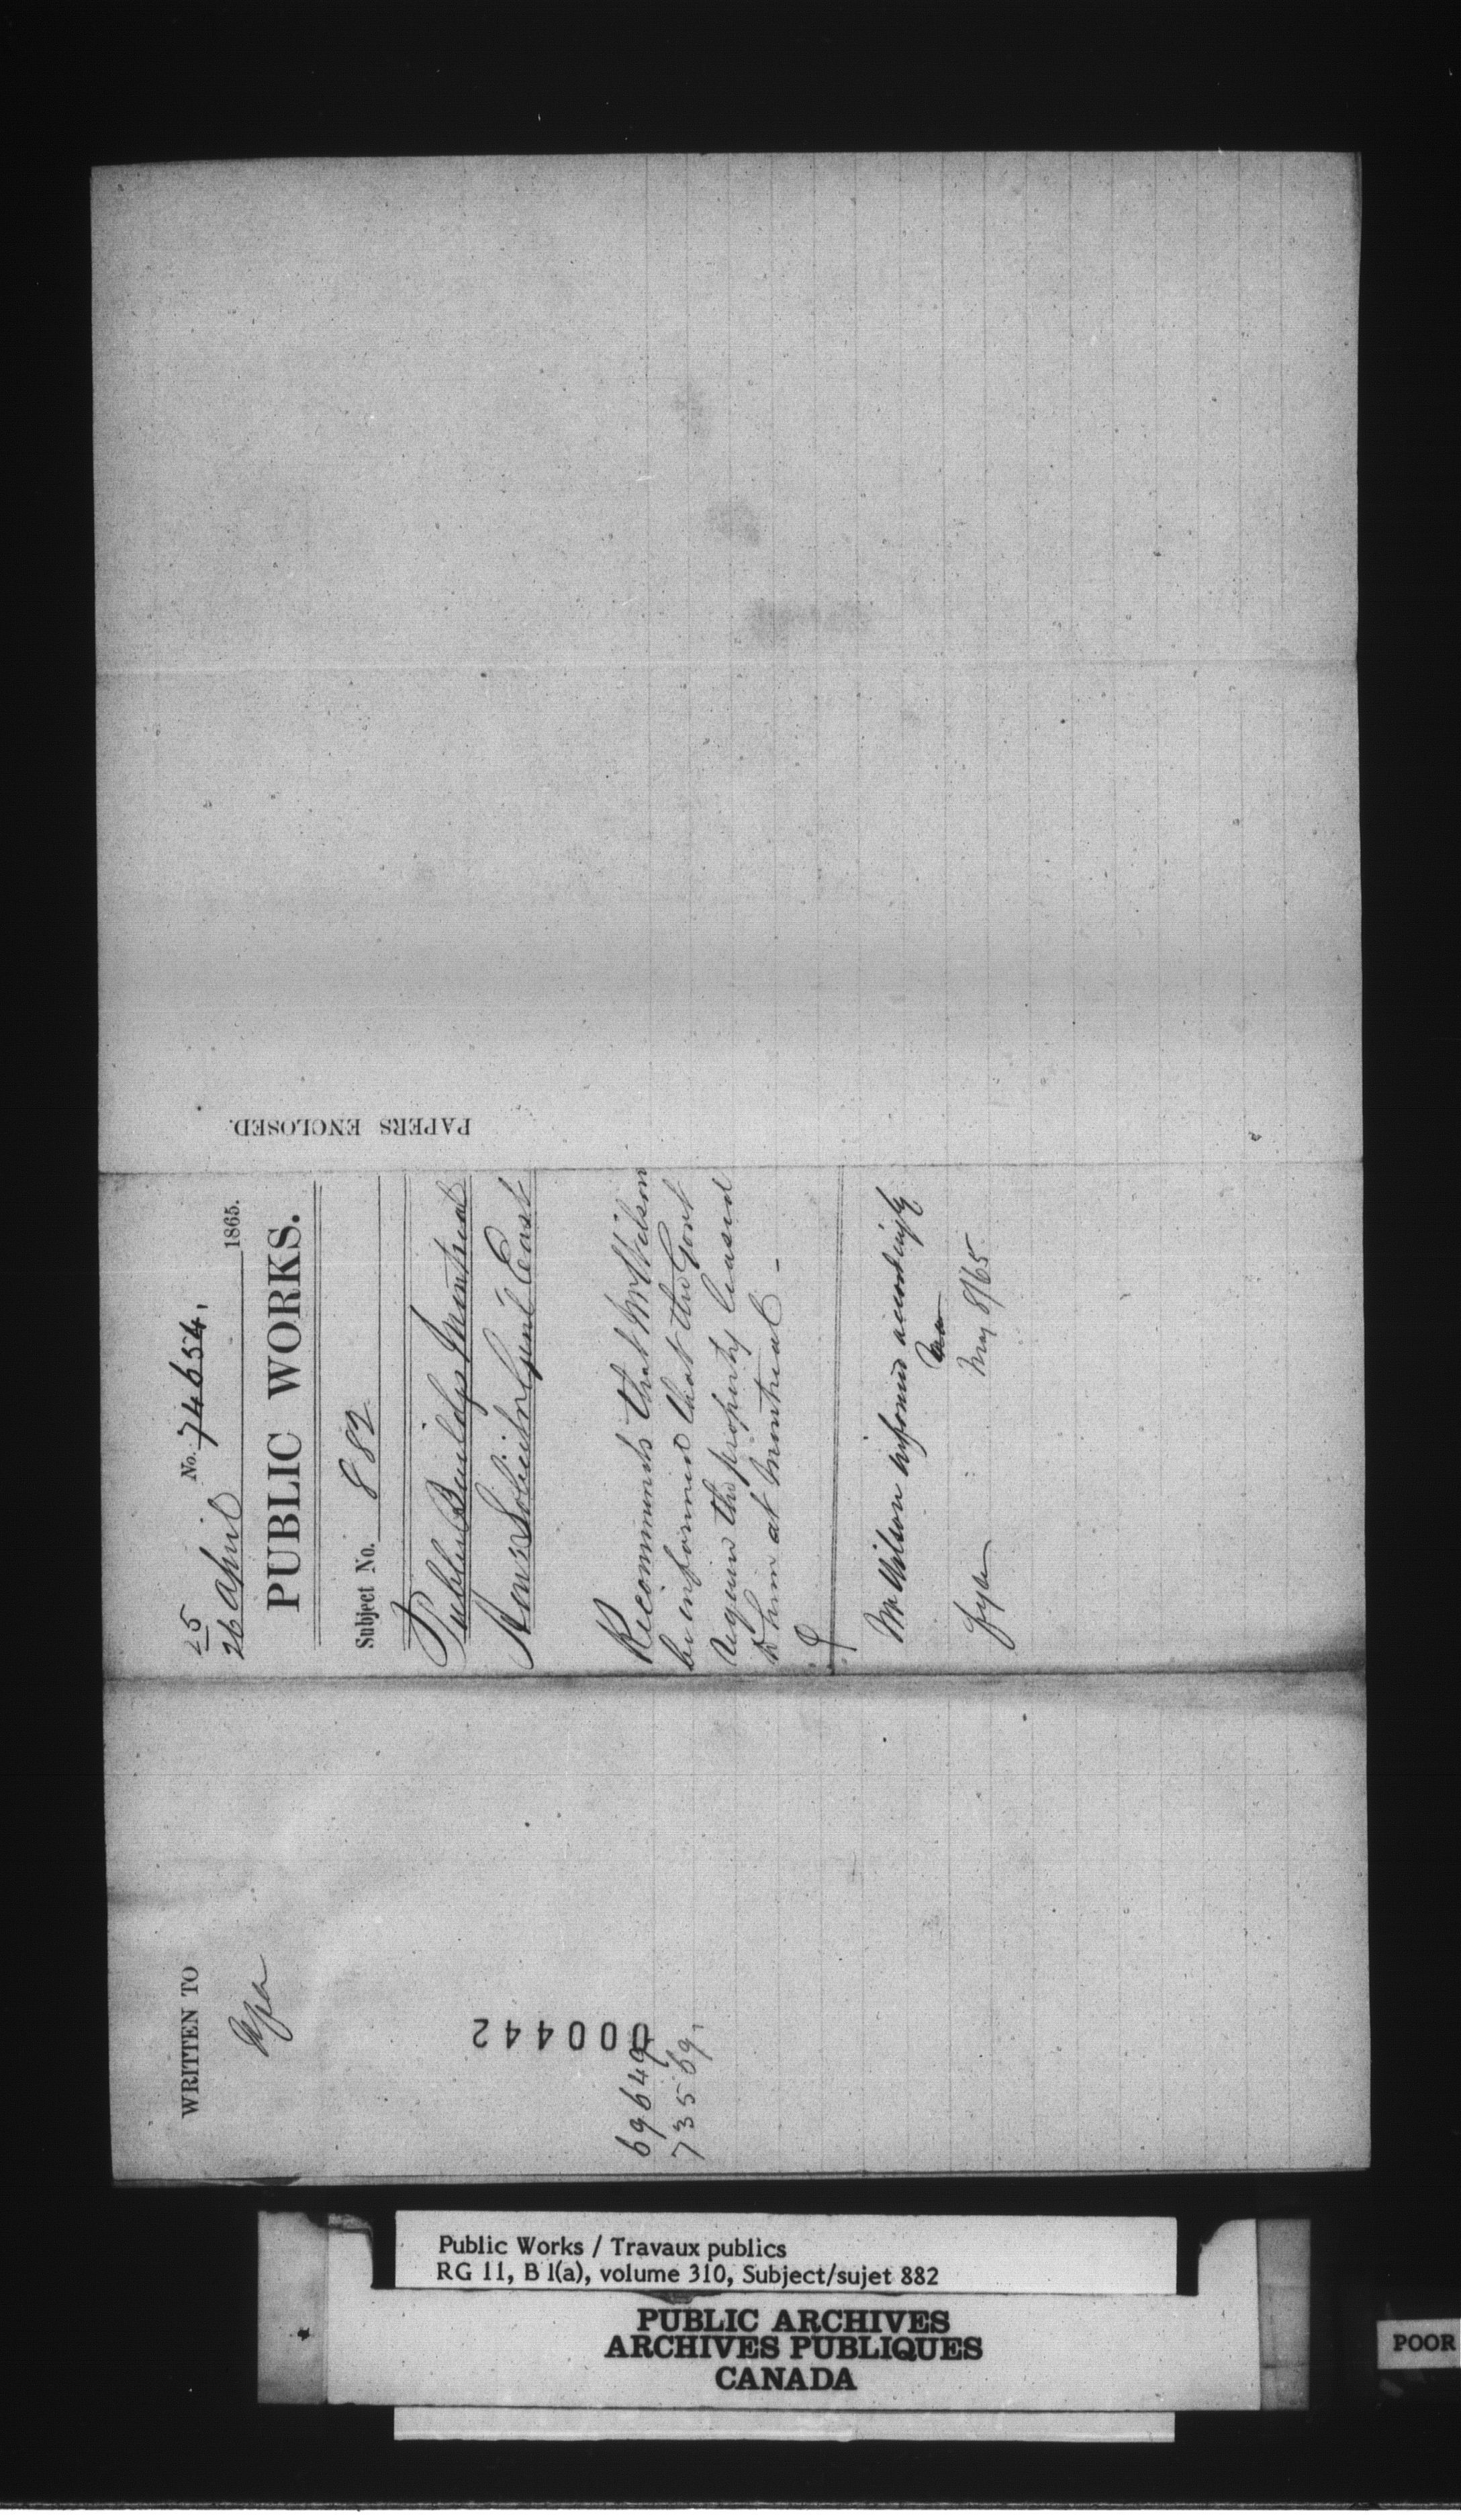 25
26 April
No. 74654,
1865.
PUBLIC WORKS.
Subject No. 882
Public Buildgs Montreal
Honr Solicitor Genl East
Recommends that Mr Wilson
be informed that the Govt
require the property leased
to him at Montreal -
Mr Wilson informed accordingly
May 8/65
PAPERS ENCLOSED.
WRITTEN TO
000442
69649
73569,
Public Works / Travaux publics
RG 11, B 1(a), volume 310, Subject/sujet 882
PUBLIC ARCHIVES
ARCHIVES PUBLIQUES
CANADA
POOR